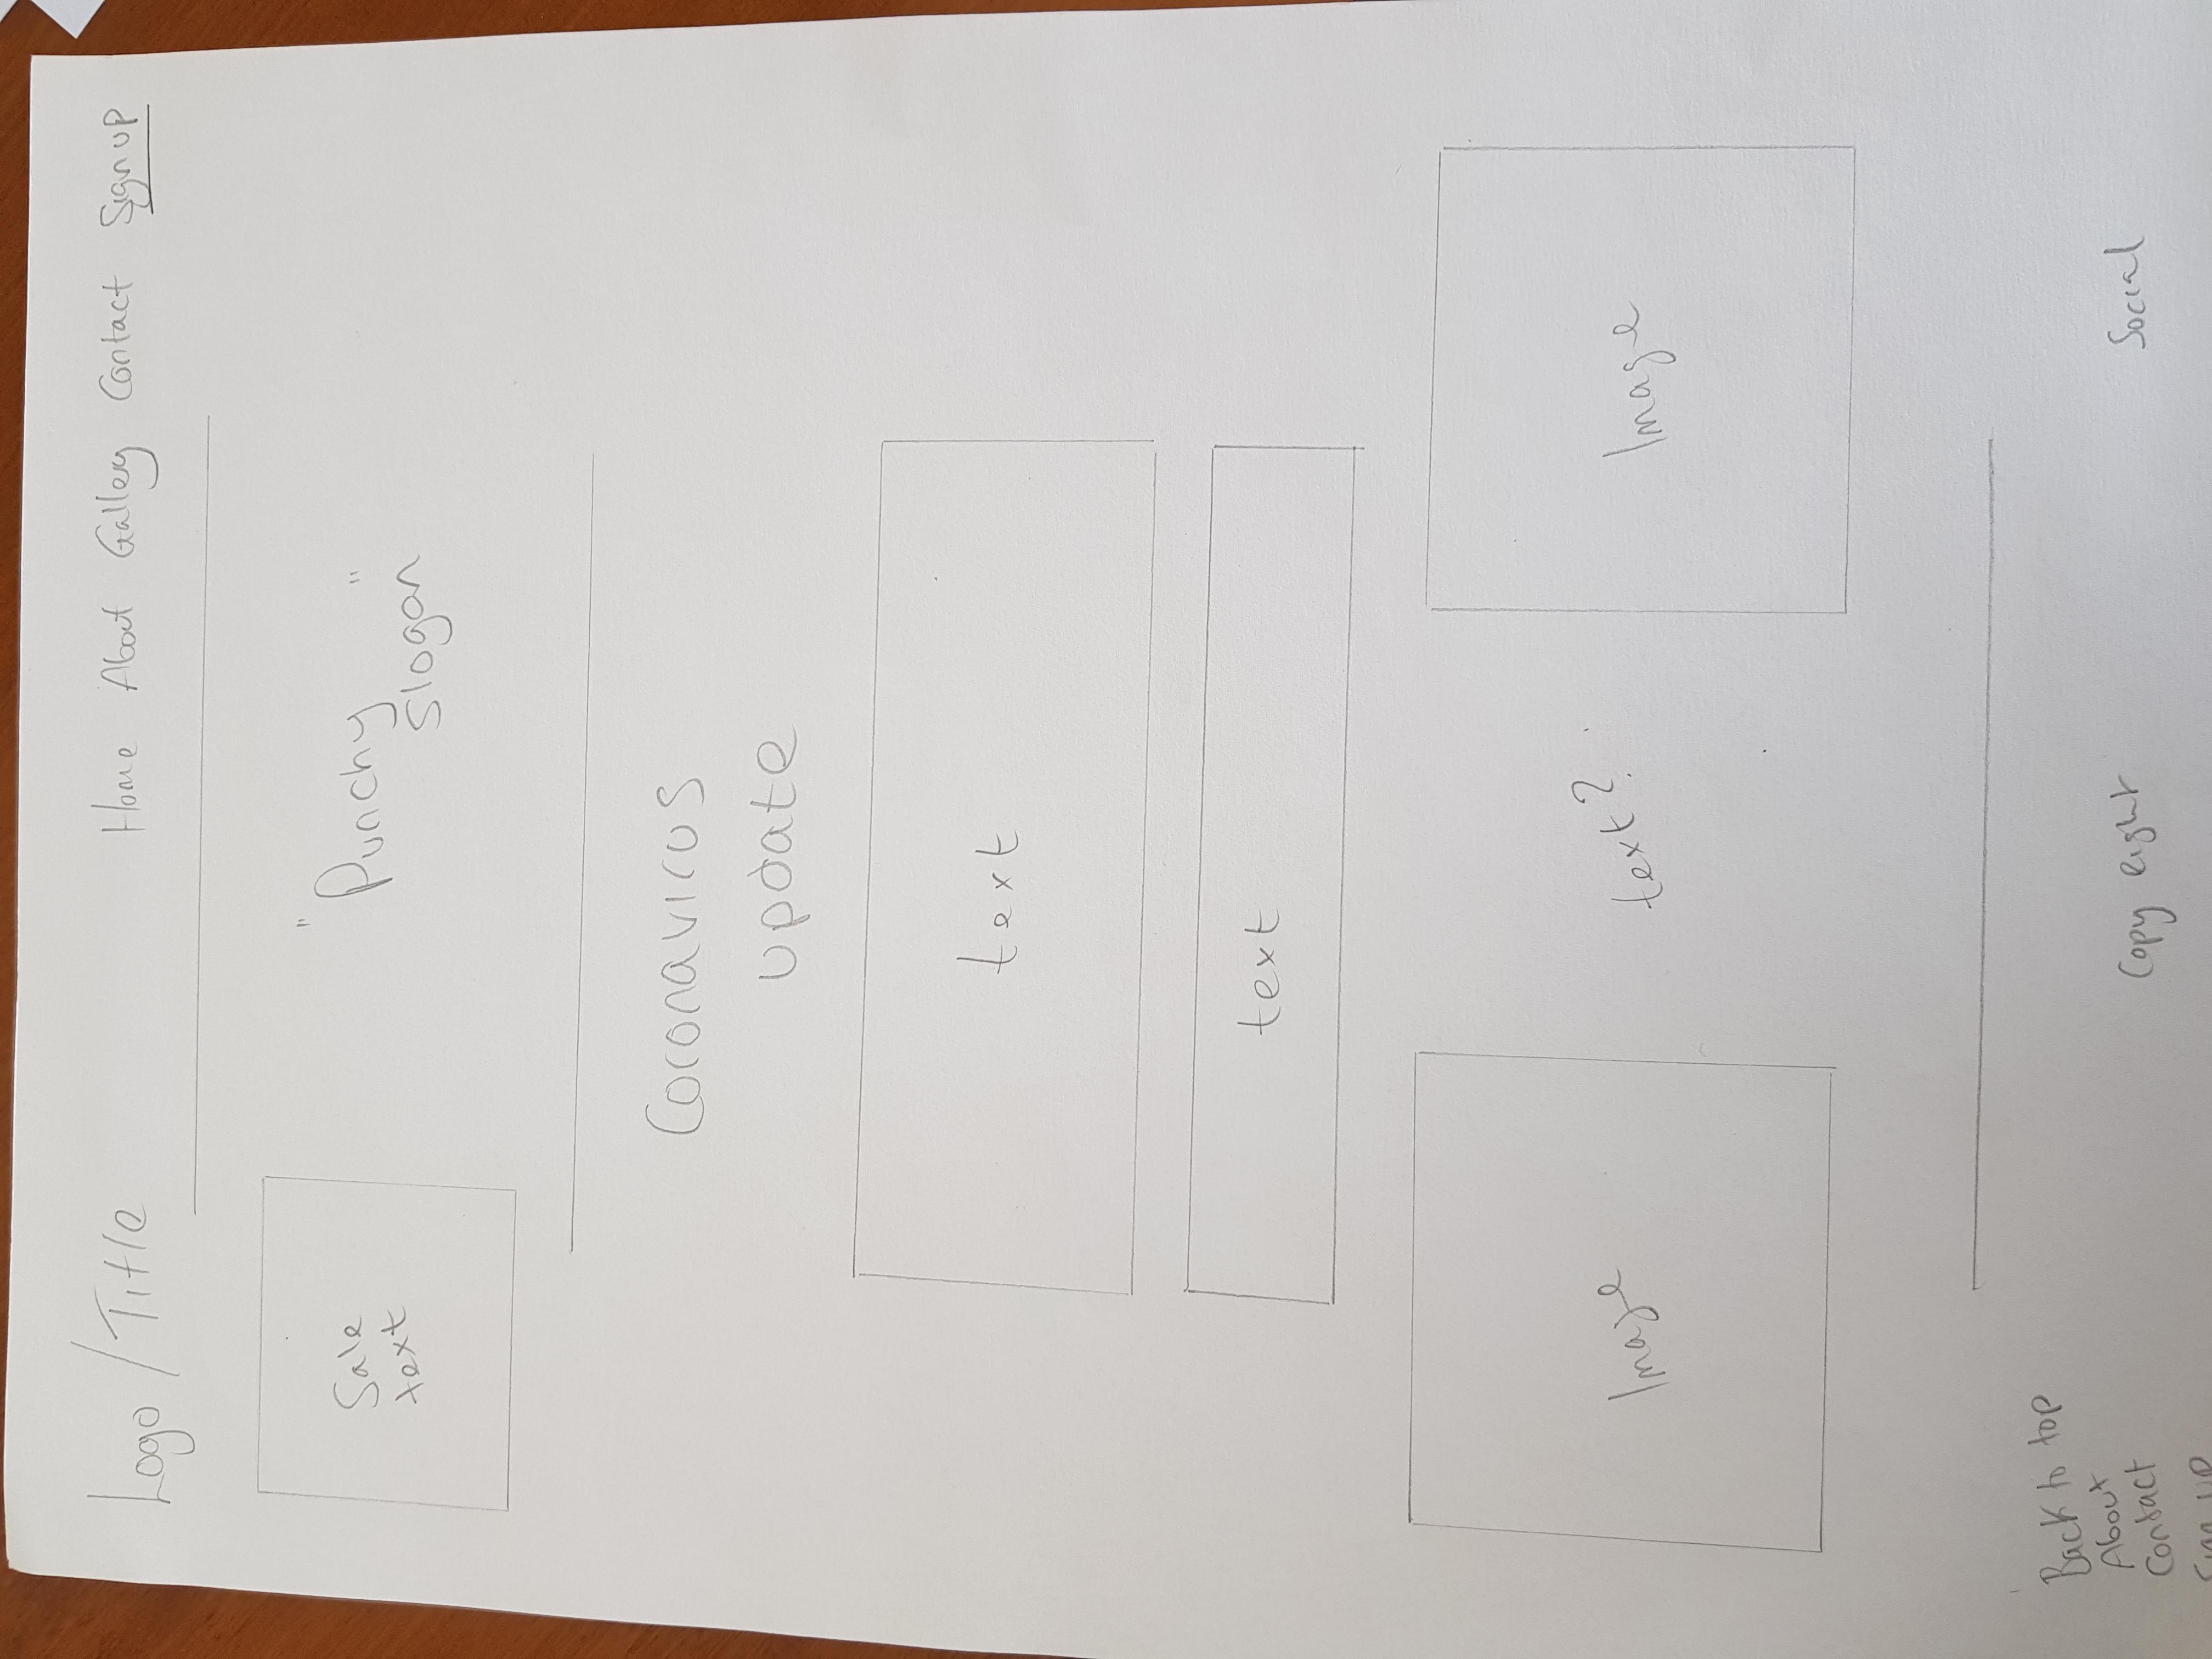 Logo / Title
Home About Gallery Contact Sign up
Sale
text
"Punchy
slogan"
Coronavirus
update
text
text
Image
text?
Image
Back to top
About
Contact
Sign up
Copy right
Social